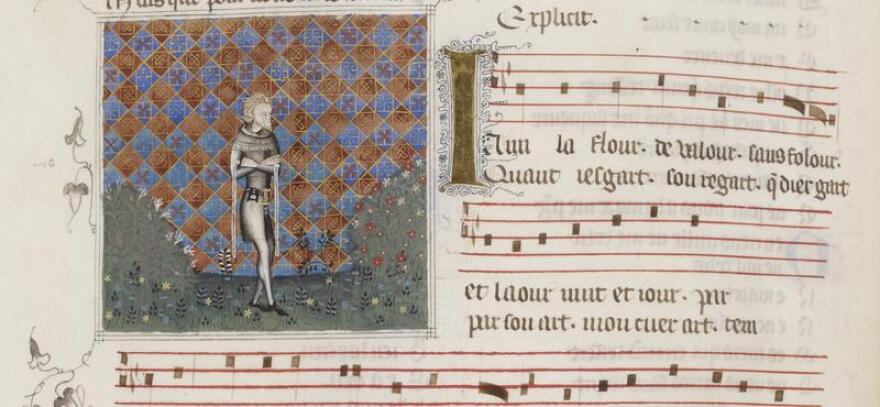 Explicit.
Jaun la flour. de valour. sans folour.
Quant iesgart. son regart. q̃ dier gart
et laour nuit et iour. par
par son art. mon cuer art. tem